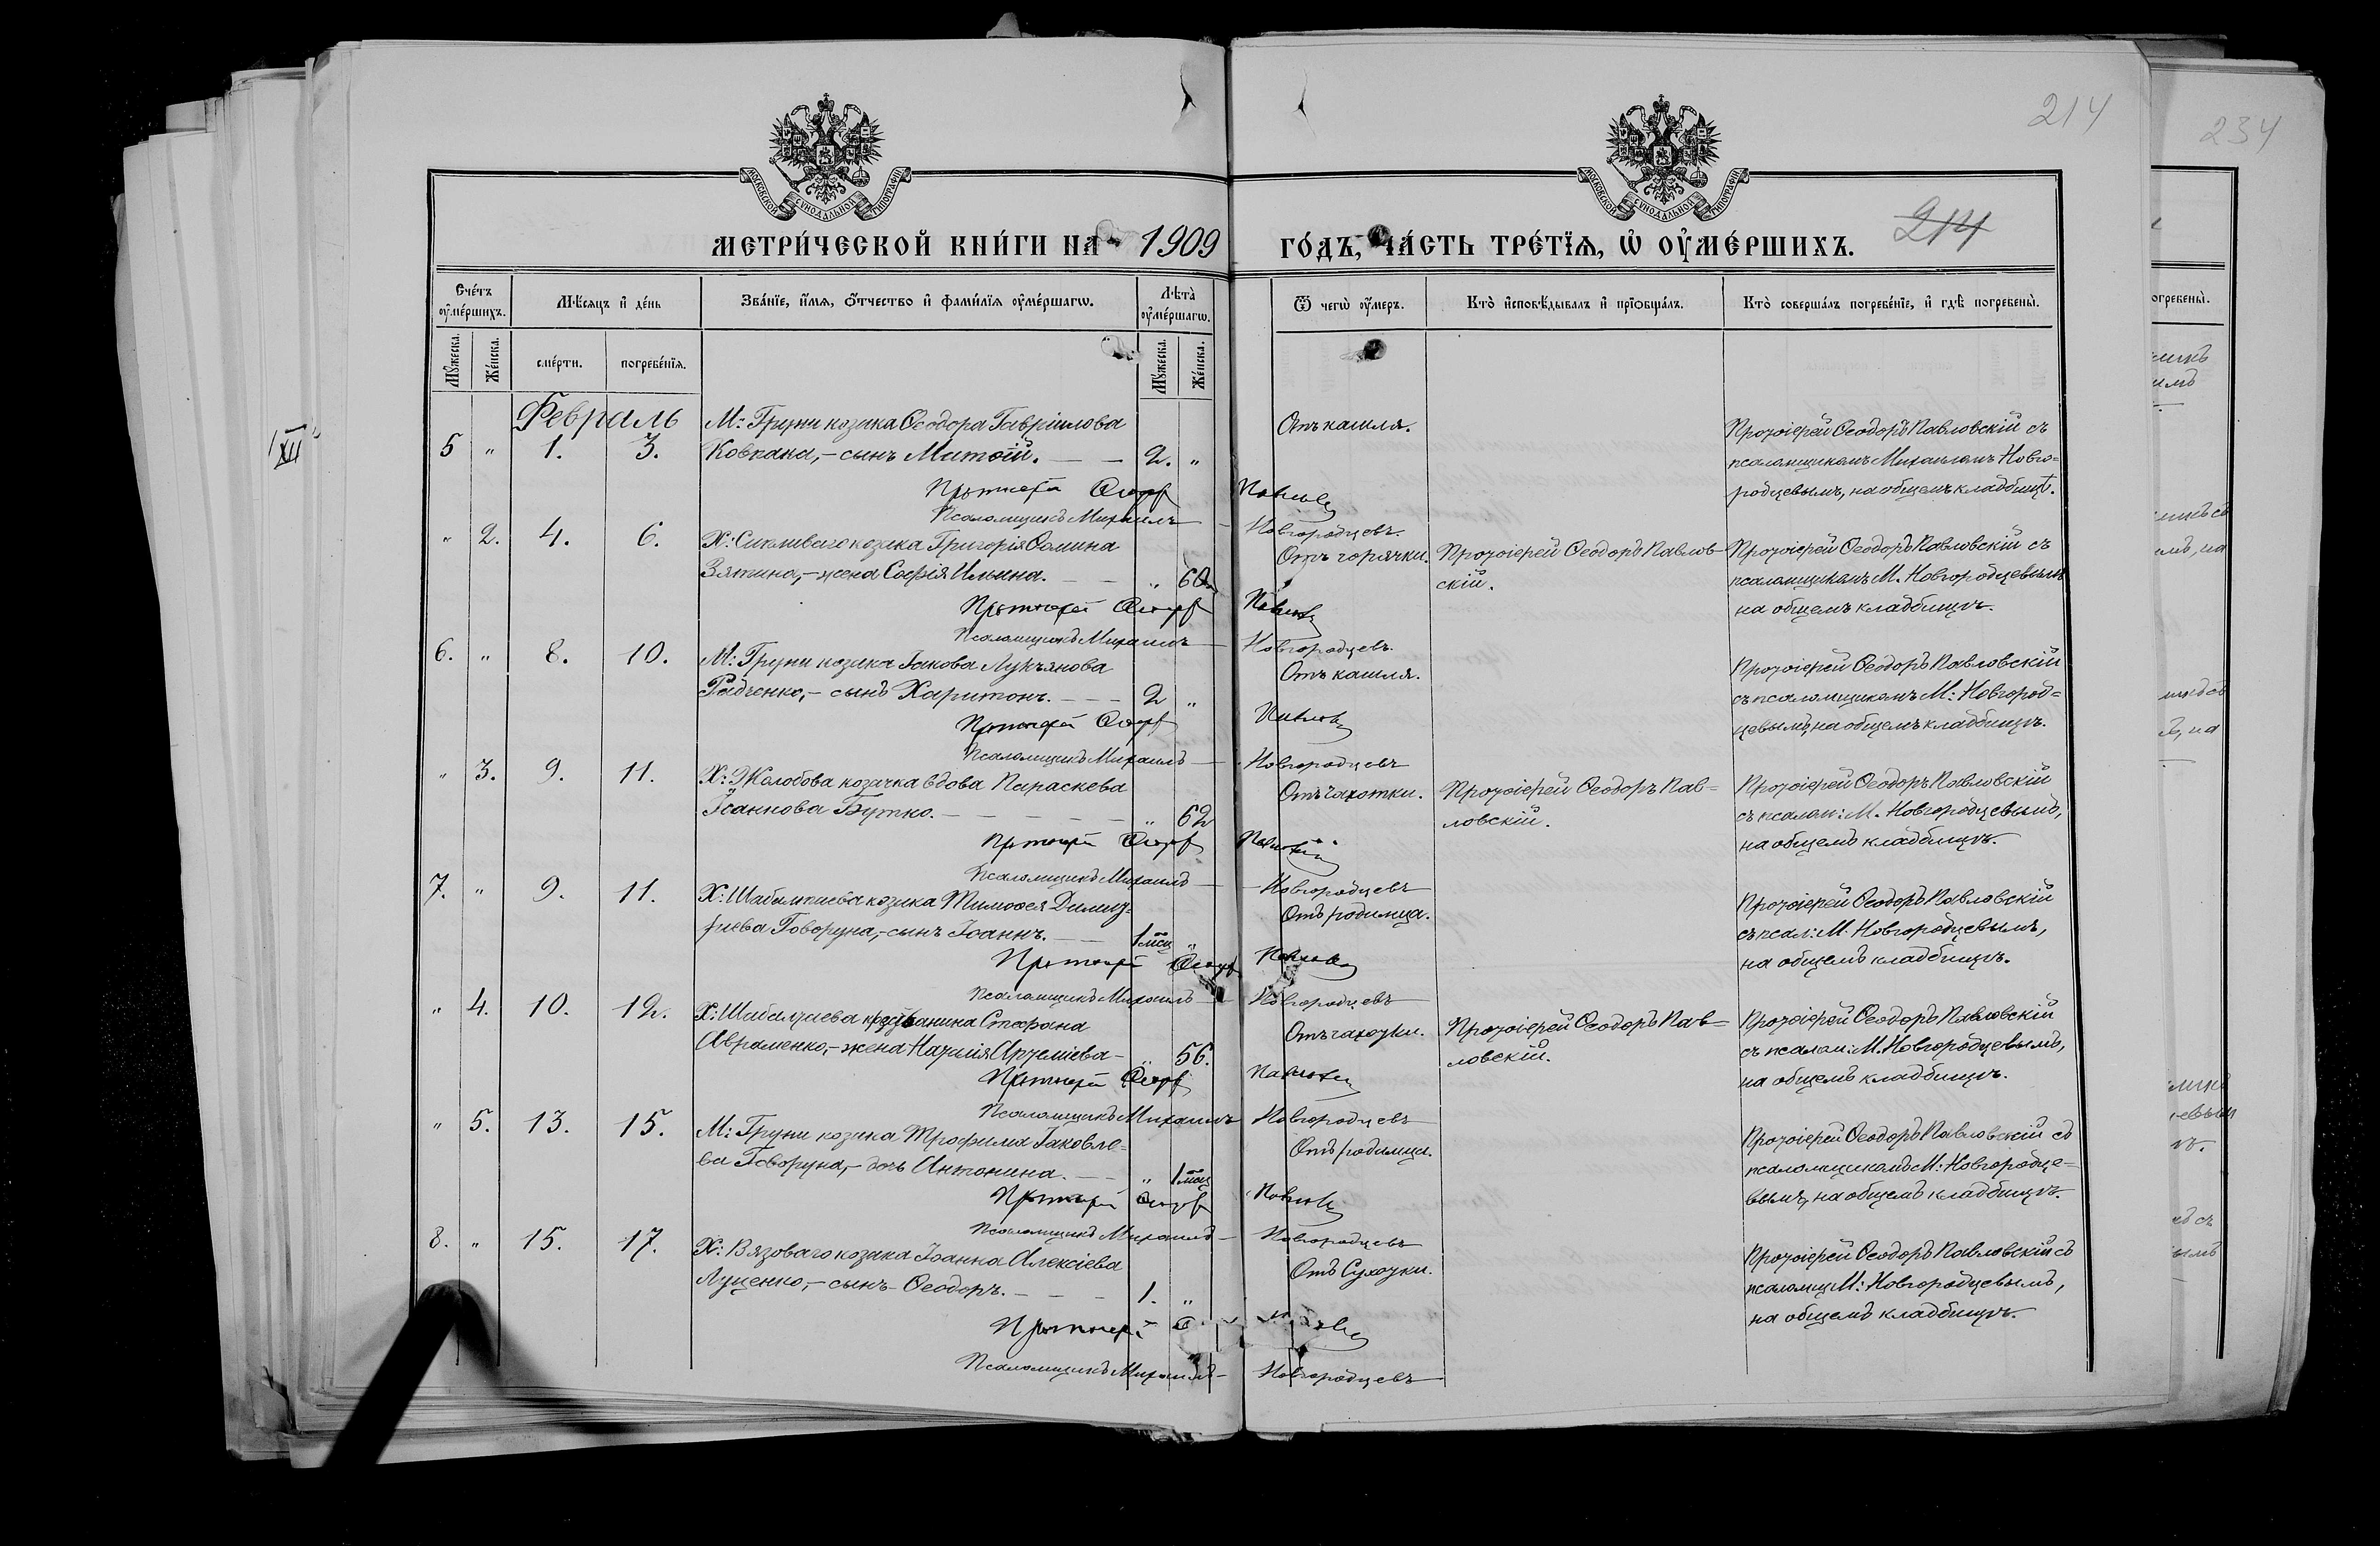 214
234
МОСКОВСКОЙ СѴНОДАЛЬНОЙ ТИПОГРАФІИ
МОСКОВСКОЙ СѴНОДАЛЬНОЙ ТИПОГРАФІИ
МЕТРИ́ЧЕСКОЙ КНИ́ГИ НА 1909
ГО́ДЪ, ЧА́СТЬ ТРЕ́ТЇѦ, Ѡ҆ ОУ҆МЕ́РШИХЪ.
214
Сче́тъ оу҆ме́ршихъ.
Мѣ́сяцъ и҆ де́нь
Зва́нїе, и҆́мѧ, ѻ҆́тчество и҆ фами́лїѧ оу҆ме́ршагѡ.
Лѣ̑та̀ оу҆ме́ршагѡ.
Ѿ чегѡ̀ оу҆́меръ.
Кто̀ и҆сповѣ́дывалъ и҆ прїѡбща́лъ.
Кто̀ соверша́лъ погребе́нїе, и҆ гдѣ̀ погребены̀.
Мꙋ́жеска.
Же́нска.
сме́рти.
погребе́нїѧ.
Мꙋ́жеска.
Же́нска.
XII
Февраль
5 " 1. 3. М: Груни козака Ѳеодора Гавріилова
Ковкана, – сынъ Матѳій. — — 2. "
Отъ кашля.
Протоіерей Ѳеодоръ Павловскій съ
псаломщикомъ Михаиломъ Новго=
родцевымъ, на общемъ кладбищѣ.
Протоіерей Ѳеодоръ Павловскій
Псаломщикъ Михаилъ — Новгородцевъ.
" 2. 4. 6. Х: козака Григорія Ѳомина
Зятина, – жена Софія Ильина. — — " 60
Отъ горячки.
Протоіерей Ѳеодоръ Павлов-
скій.
Протоіерей Ѳеодоръ Павловскій съ
псаломщикомъ М. Новгородцевымъ
на общемъ кладбищѣ.
Протоіерей Ѳеодоръ Павловскій
Псаломщикъ Михаилъ — Новгородцевъ.
6. " 8. 10. М: Груни козака Іакова Лукьянова
Радченко, – сынъ Харитонъ. — — 2 "
Отъ кашля.
Протоіерей Ѳеодоръ Павловскій
съ псаломщикомъ М: Новгород=
цевымъ, на общемъ кладбищѣ.
Протоіерей Ѳеодоръ Павловскій
Псаломщикъ Михаилъ — Новгородцевъ
" 3. 9. 11. Х: Жолобова козачка вдова Параскева
Іоаннова Бутко. — — — " 62
Отъ чахотки.
Протоіерей Ѳеодоръ Пав=
ловскій.
Протоіерей Ѳеодоръ Павловскій
съ псалом: М. Новгородцевымъ,
на общемъ кладбищѣ.
Протоіерей Ѳеодоръ Павловскій
Псаломщикъ Михаилъ — Новгородцевъ
7. " 9. 11. Х: козака Тимоѳея Димит-
ріева Говоруна, – сынъ Іоаннъ. — — 1 мѣсц "
Отъ родимца.
Протоіерей Ѳеодоръ Павловскій
съ псал: М. Новгородцевымъ,
на общемъ кладбищѣ.
Протоіерей Ѳеодоръ Павловскій
Псаломщикъ Михаилъ — Новгородцевъ
" 4. 10. 12. Х: Стефана
Авраменко, – жена Наталія Артеміева — " 56.
Отъ чахотки.
Протоіерей Ѳеодоръ Пав=
ловскій.
Протоіерей Ѳеодоръ Павловскій
съ псалом: М. Новгородцевымъ,
на общемъ кладбищѣ.
Протоіерей Ѳеодоръ Павловскій
Псаломщикъ Михаилъ Новгородцевъ
" 5. 13. 15. М: Груни козака Трофима Іаковле=
ва Говоруна, – дочь Антонина. — — " 1 мѣсц
Отъ родимца.
Протоіерей Ѳеодоръ Павловскій съ
псаломщикомъ М: Новгородце=
вымъ, на общемъ кладбищѣ.
Протоіерей Ѳеодоръ Павловскій
Псаломщикъ Михаилъ — Новгородцевъ
8. " 15. 17. Х: Вязоваго козака Іоанна Алексіева
Луценко, – сынъ Ѳеодоръ. — — — 1. "
Отъ Сухотки.
Протоіерей Ѳеодоръ Павловскій съ
псаломщ М: Новгородцевымъ,
на общемъ кладбищѣ.
Протоіерей
Псаломщикъ Михаилъ — Новгородцевъ